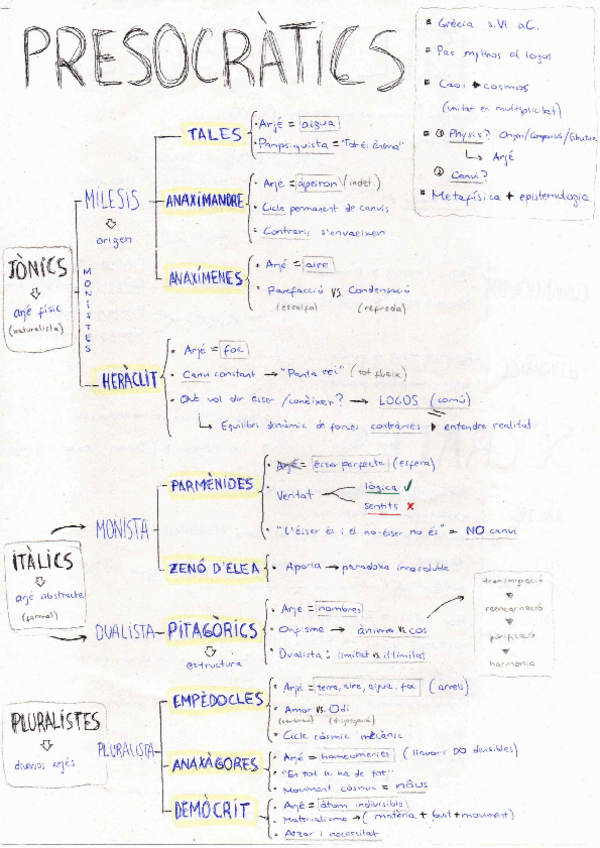 PRESOCRÀTICS
▪ Grècia s.VI aC.
▪ Pas mythos al logos
▪ Caos → cosmos
(unitat en multiplicitat)
▪ ① Physis?
↳ Arjé
② Canvi?
▪ Metafísica + epistemologia
JÒNICS
arjé físic
(naturalista)
MONISTES
MILESIS
origen
TALES
· Arjé = aigua
· Panpsiquista = "Tot és ànima"
ANAXIMANDRE
· Arjé = ápeiron (indet.)
· Cicle permanent de canvis
· Contraris s'envaeixen
ANAXÍMENES
· Arjé = aire
· Rarefacció vs. Condensació
(escalfa) (refreda)
HERÀCLIT
· Arjé = foc
· Canvi constant → "Panta rei" (tot flueix)
· Què vol dir ésser/conèixer? → LOGOS (comú)
↳ Equilibri dinàmic de forces contràries entendre realitat
ITÀLICS
arjé abstracte
(formal)
MONISTA
PARMÈNIDES
· Arjé = ésser perfecte (esfera)
· Veritat
lògica ✓
sentits ✗
· "L'ésser és i el no-ésser no és" = NO canvi
ZENÓ D'ELEA
· Aporia → paradoxa irresoluble
DUALISTA
PITAGÒRICS
estructura
· Arjé = nombres
· Orfisme → ànima vs. cos
· Dualista: limitat vs. il·limitat
transmigració
reencarnació
purificació
harmonia
PLURALISTES
diversos arjés
PLURALISTA
EMPÈDOCLES
· Arjé = terra, aire, aigua, foc (arrels)
· Amor vs. Odi
· Cicle còsmic mecànic
ANAXÀGORES
· Arjé = homeomeries (llavors ∞ divisibles)
· "En tot hi ha de tot"
· Moviment còsmic = noûs
DEMÒCRIT
· Arjé = àtom indivisible
· Materialisme → (matèria + buit + moviment)
· Atzar i necessitat